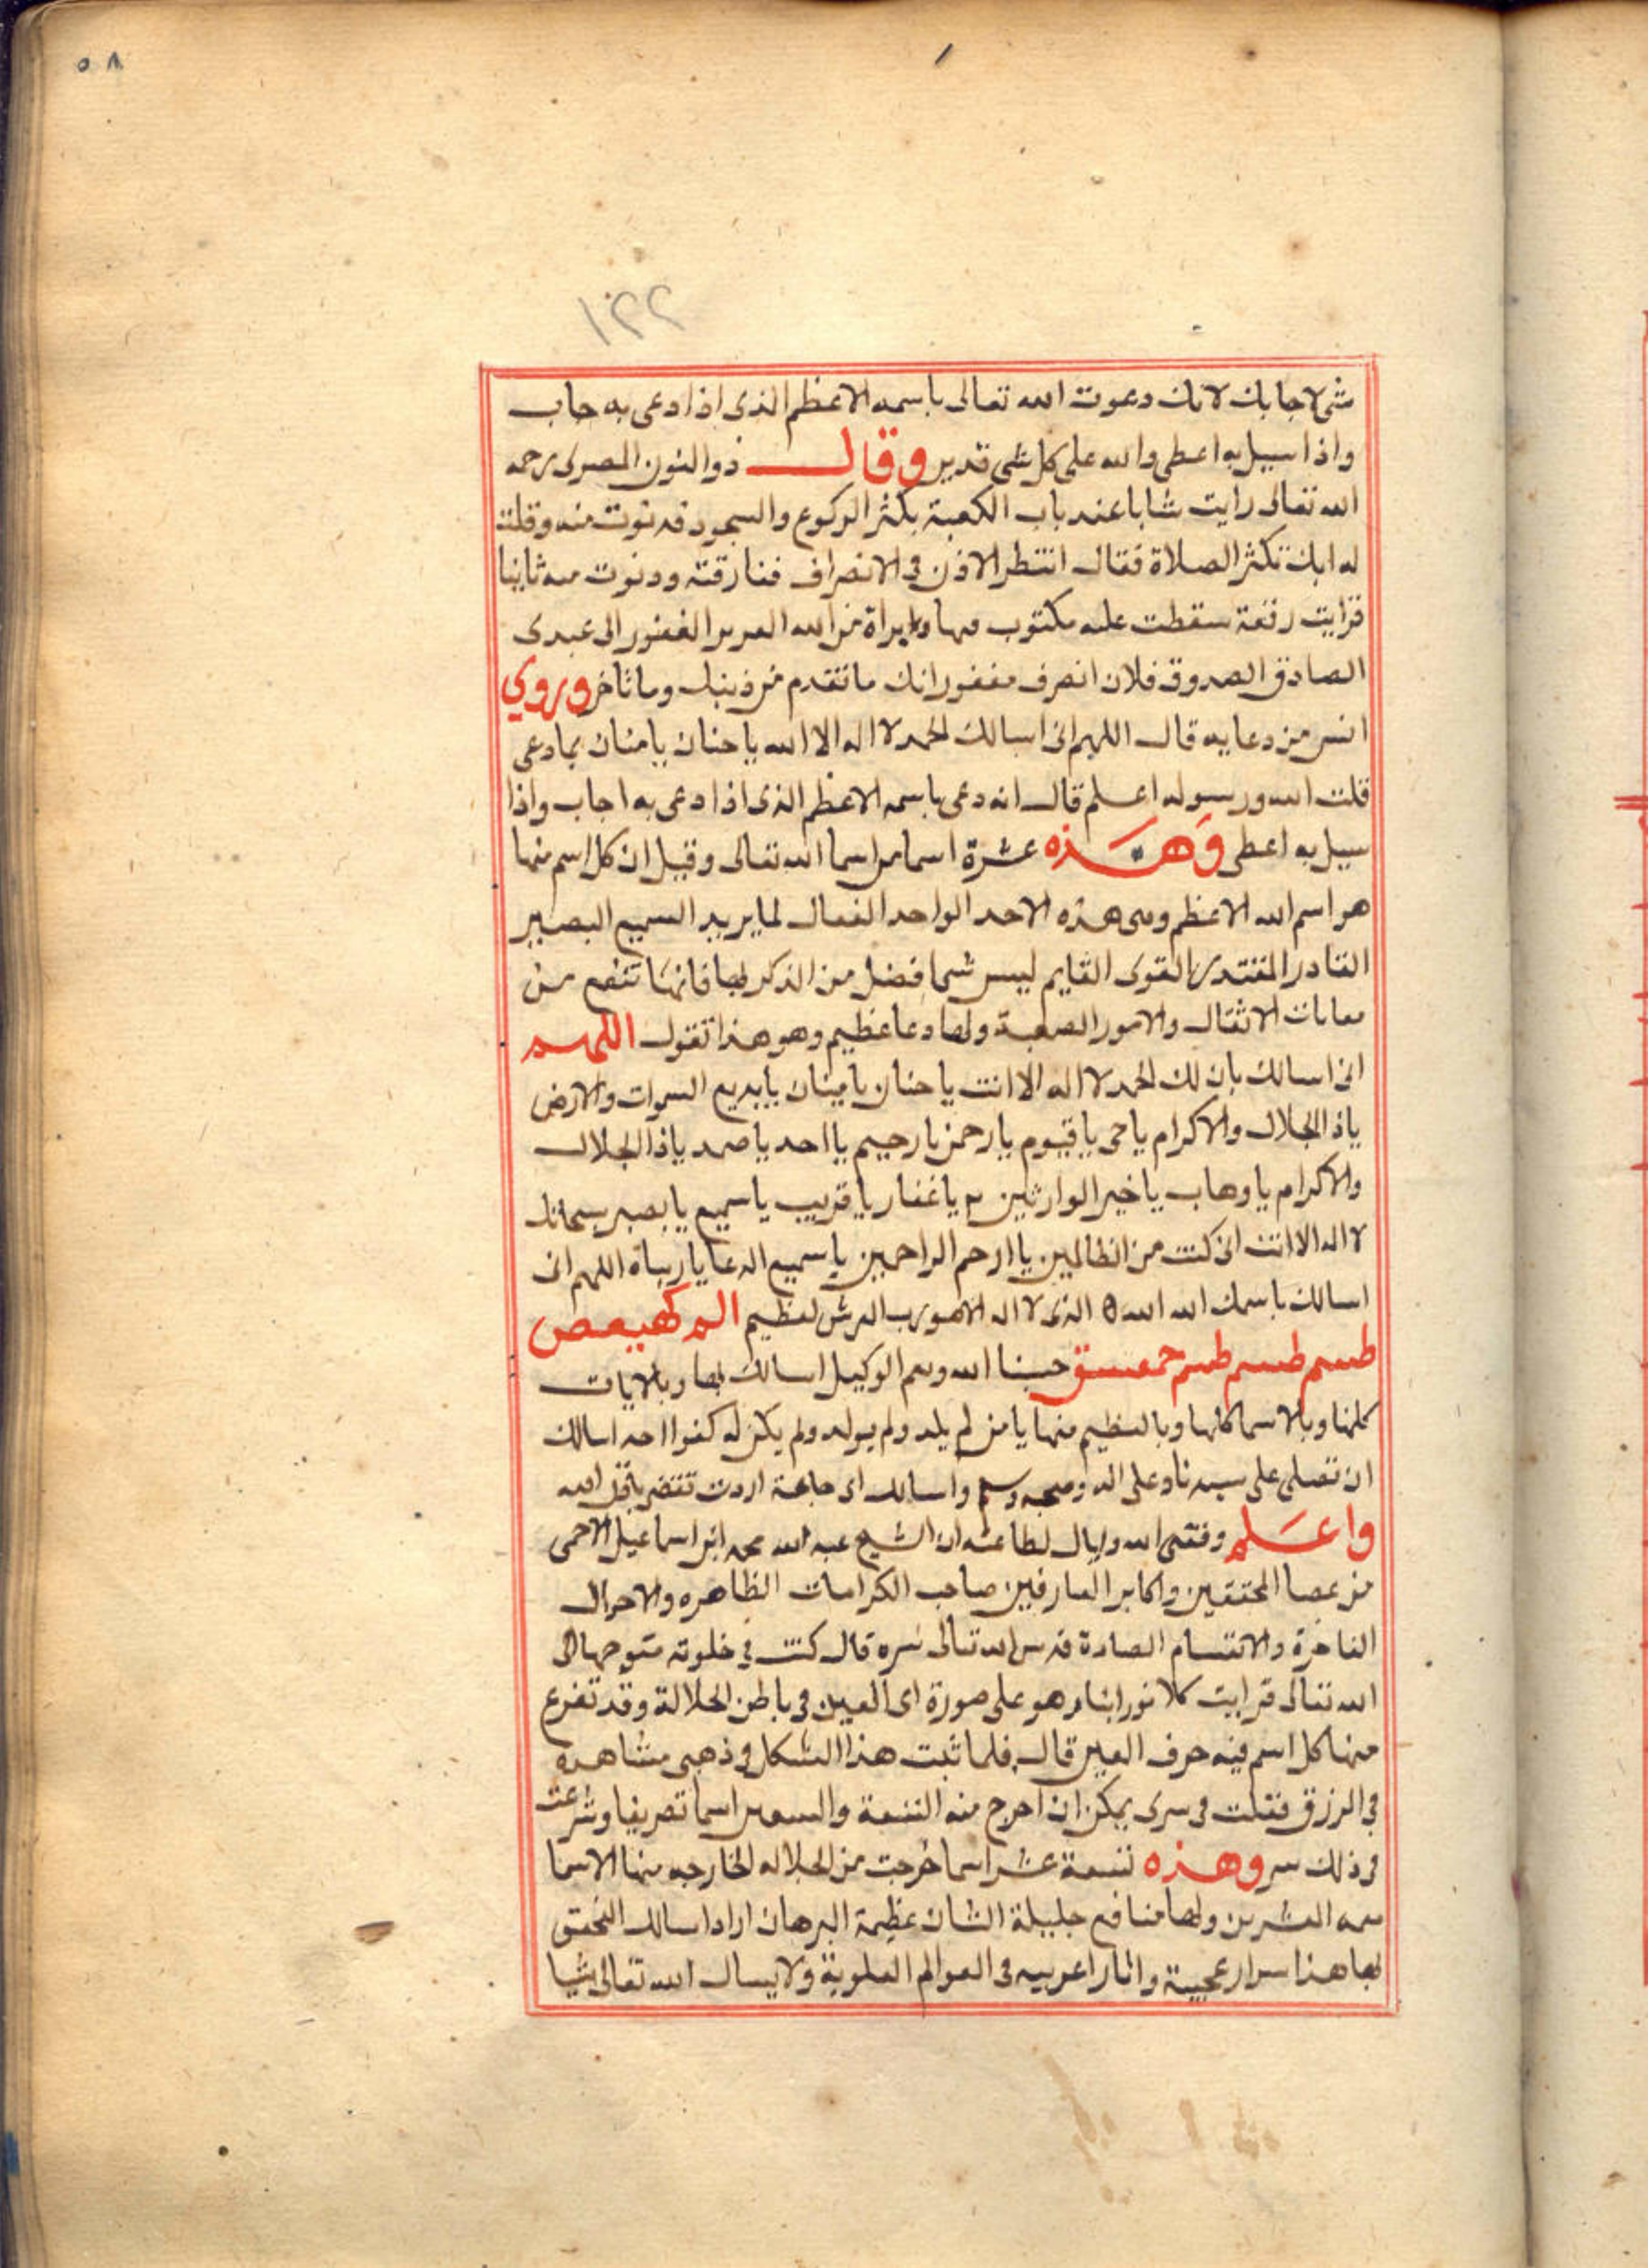 ٥٨
١٢٢
شي لاجابك لانك دعوت الله تعالى باسمه الاعظم الذي اذا دعى به جاب
واذا سيل به اعطى والله على كل شي قدير وقال ذو النون المصري رحمه
الله تعالى رايت شابا عند باب الكعبة يكثر الركوع والسجود فدنوت منه وقلت
له انك تكثر الصلاة فقال انتظر الاذن في الانصراف ففارقته ودنوت منه ثانيا
فرايت رقعة سقطت عليه مكتوب فيها براة من الله العزيز الغفور الى عبدي
الصادق الصدوق فلان انصرف مغفورا لك ما تقدم من ذنبك وما تاخر وروي
انس من دعايه قال اللهم اني اسالك الحمد لا اله الا الله يا حنان يا منان بما دعى
قلت الله ورسوله اعلم قال انه دعى باسمه الاعظم الذي اذا دعى به اجاب واذا
سيل به اعطى وهذه عشرة اسما من اسما الله تعالى وقيل ان كل اسم منها
هو اسم الله الاعظم وهي هذه الاحد الواحد الفعال لما يريد السميع البصير
القادر المقتدر القوي القايم ليس شي افضل من الذكر بها فانها تنفع من
معانات الاثقال والامور الصعبة ولها دعا عظيم وهو هذا تقول اللهم
اني اسالك بان لك الحمد لا اله الا انت يا حنان يا منان يا بديع السموات والارض
ياذ الجلال والاكرام يا حي يا قيوم يا رحمن يا رحيم يا احد يا صمد ياذا الجلال
والاكرام يا وهاب يا خير الوارثين يا غفار يا قريب يا سميع يا بصير سبحانك
لا اله الا انت اني كنت من الظالمين يا ارحم الراحمين يا سميع الدعا يا رباه اللهم اني
اسالك باسمك الله الله الذي لا اله الا هو رب العرش لعظيم الم كهيعص
طسم طسم طسم حمعسق حسبنا الله ونعم الوكيل اسالك بها وبالايات
كلها وبالاسما كلها وبالعظيم منها يا من لم يلد ولم يولد ولم يكن له كفوا احد اسالك
ان تصلي على سيدنا وعلى اله وصحبه وسلم واسالك اي حاجة اردت تقضى باذن الله
واعلم وفقني الله واياك لطاعته ان الشيخ عبد الله محمد ابن اسماعيل الاحمى
من المحققين واكابر العارفين صاحب الكرامات الظاهره والاحوال
الفاخرة والاقسام الصادة قدس الله تعالى سره قال كنت في خلوته متوجها الى
الله تعالى فرايت وهو على صورة اي العين في باطن الجلالة وقد تفرع
منها كل اسم فيه حرف العين قال فلما ثبت هذا الشكل في ذهني مشاهده
في الرزق فقلت في سري يمكن ان اخرج منه التسعة والتسعين اسما تصريفا وشرعت
في ذلك سر وهذه تسعة عشر اسما خرجت من الجلاله الخارجه منها الاسما
معه العشرين ولها منافع جليلة الشان عظيمة البرهان اراد اسالك التحقق
بها هذا اسرار عجيبة واثارا غريبه في العوالم العلوية ولا يسال الله تعالى شيا